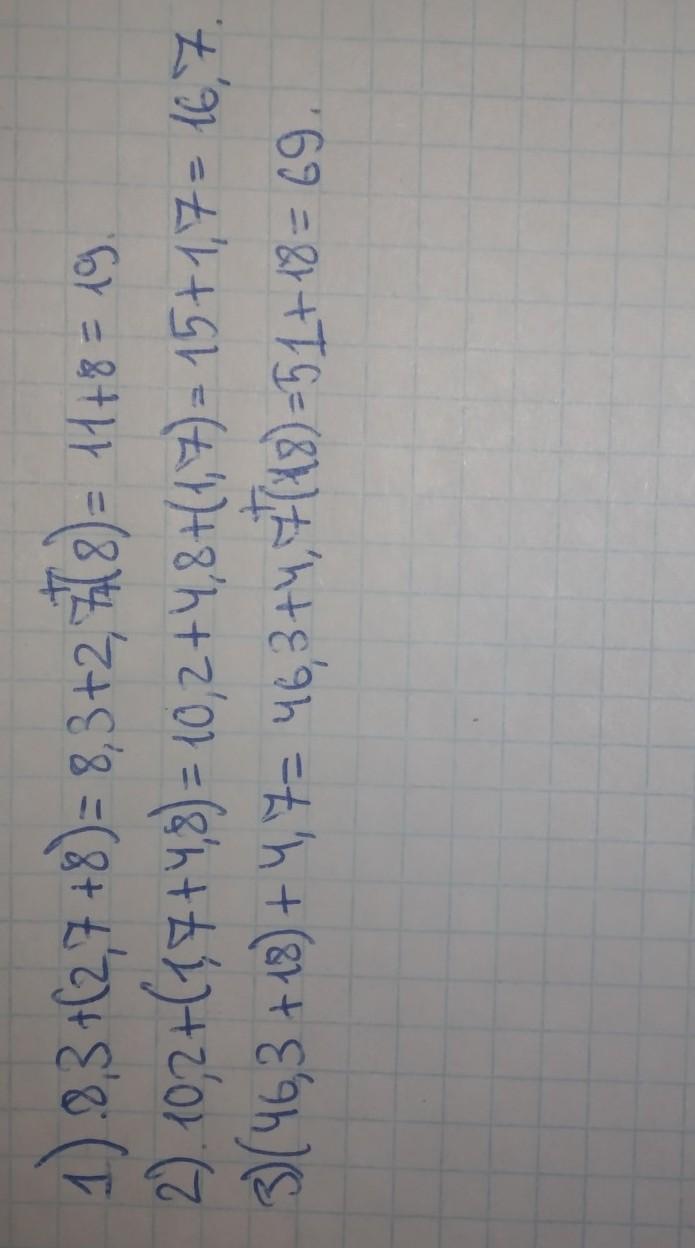 1) 8,3+(2,7+8)=8,3+2,7+(8)=11+8=19.
2) 10,2+(1,7+4,8)=10,2+4,8+(1,7)=15+1,7=16,7.
3)(46,3+18)+4,7=46,3+4,7+(18)=51+18=69.